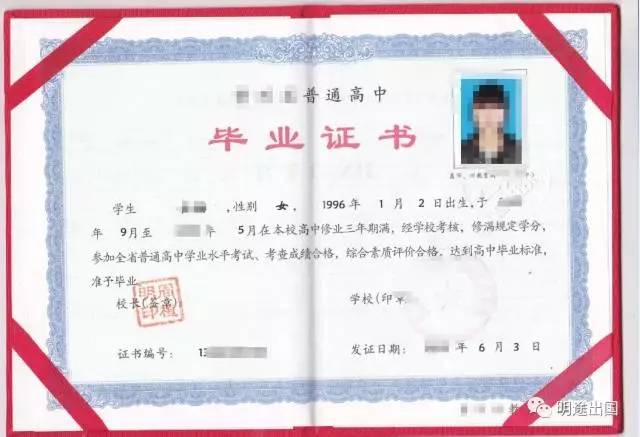 普通高中
毕业证书
学生 ,性别 女 ,1996年 1月 2日出生,于
年 9月至 年 5月在本校高中修业三年期满,经学校考核,修满规定学分,
参加全省普通高中学业水平考试、考查成绩合格,综合素质评价合格。达到高中毕业标准,
准予毕业。
校长(签章) 学校(印章
证书编号: 13
发证日期: 年 6月 3日
明途出国